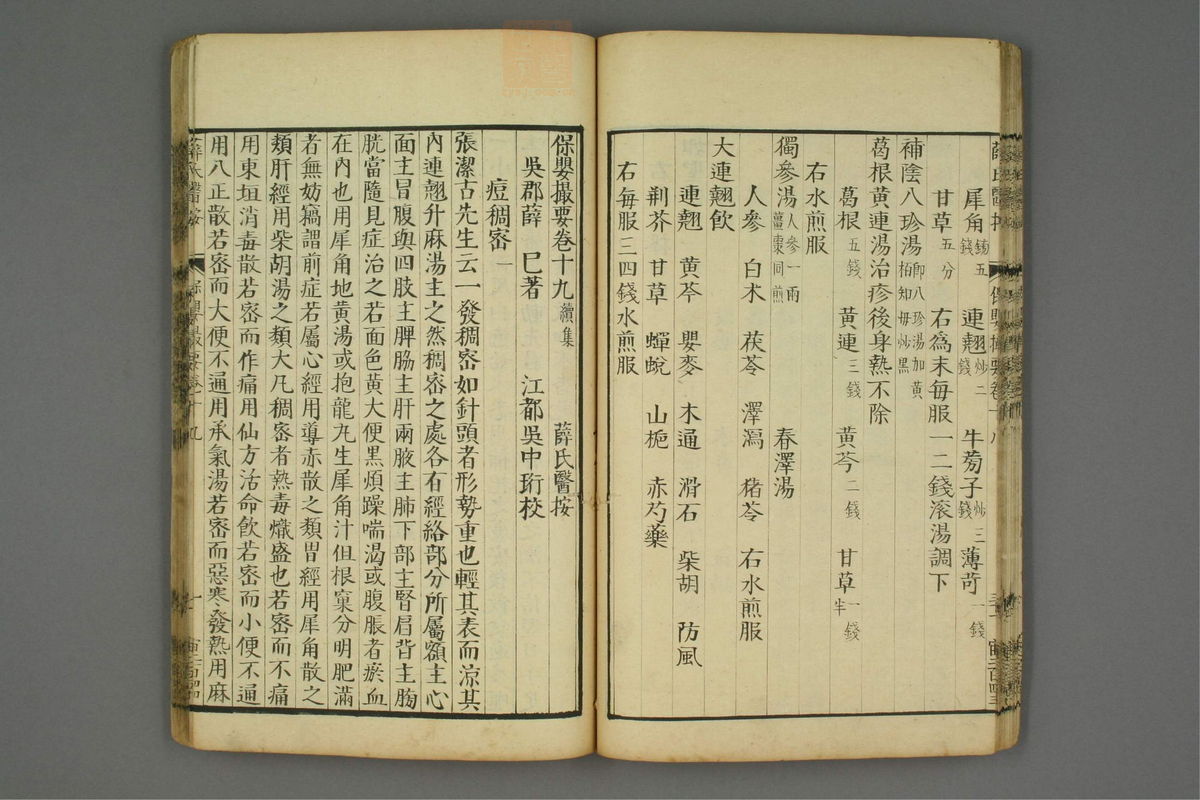 犀角鎊五錢　連翹炒二錢　牛蒡子炒三錢　薄苛一錢
甘草五分　右為末每服一二錢滚湯調下
補陰八珍湯即八珍湯加黃柏知母炒黑
葛根黃連湯治疹後身熱不除
葛根五錢　黃連三錢　黃芩二錢　甘草一錢半
右水煎服
獨參湯人參一兩薑棗同煎　春澤湯
人參　白朮　茯苓　澤瀉　猪苓　右水煎服
大連翹飲
連翹　黃芩　嬰麥　木通　滑石　柴胡　防風
荆芥　甘草　蟬蛻　山梔　赤芍藥
右每服三四錢水煎服
保嬰撮要卷十九續集　薛氏醫按
吳郡薛　巳著　江都吳中珩校
痘稠密一
張潔古先生云一發稠密如針頭者形勢重也輕其表而涼其
內連翹升麻湯主之然稠密之處各有經絡部分所屬額主心
面主胃腹與四肢主脾脇主肝兩腋主肺下部主腎肩背主胸
胱當隨見症治之若面色黃大便黑煩躁喘渴或腹脹者瘀血
在內也用犀角地黃湯或抱龍丸生犀角汁但根窠分明肥滿
者無妨竊謂前症若屬心經用導赤散之類胃經用犀角散之
類肝經用柴胡湯之類大凡稠密者熱毒熾盛也若密而不痛
用東垣消毒散若密而作痛用仙方活命飲若密而小便不通
用八正散若密而大便不通用承氣湯若密而惡寒發熱用麻
保嬰撮要卷十九